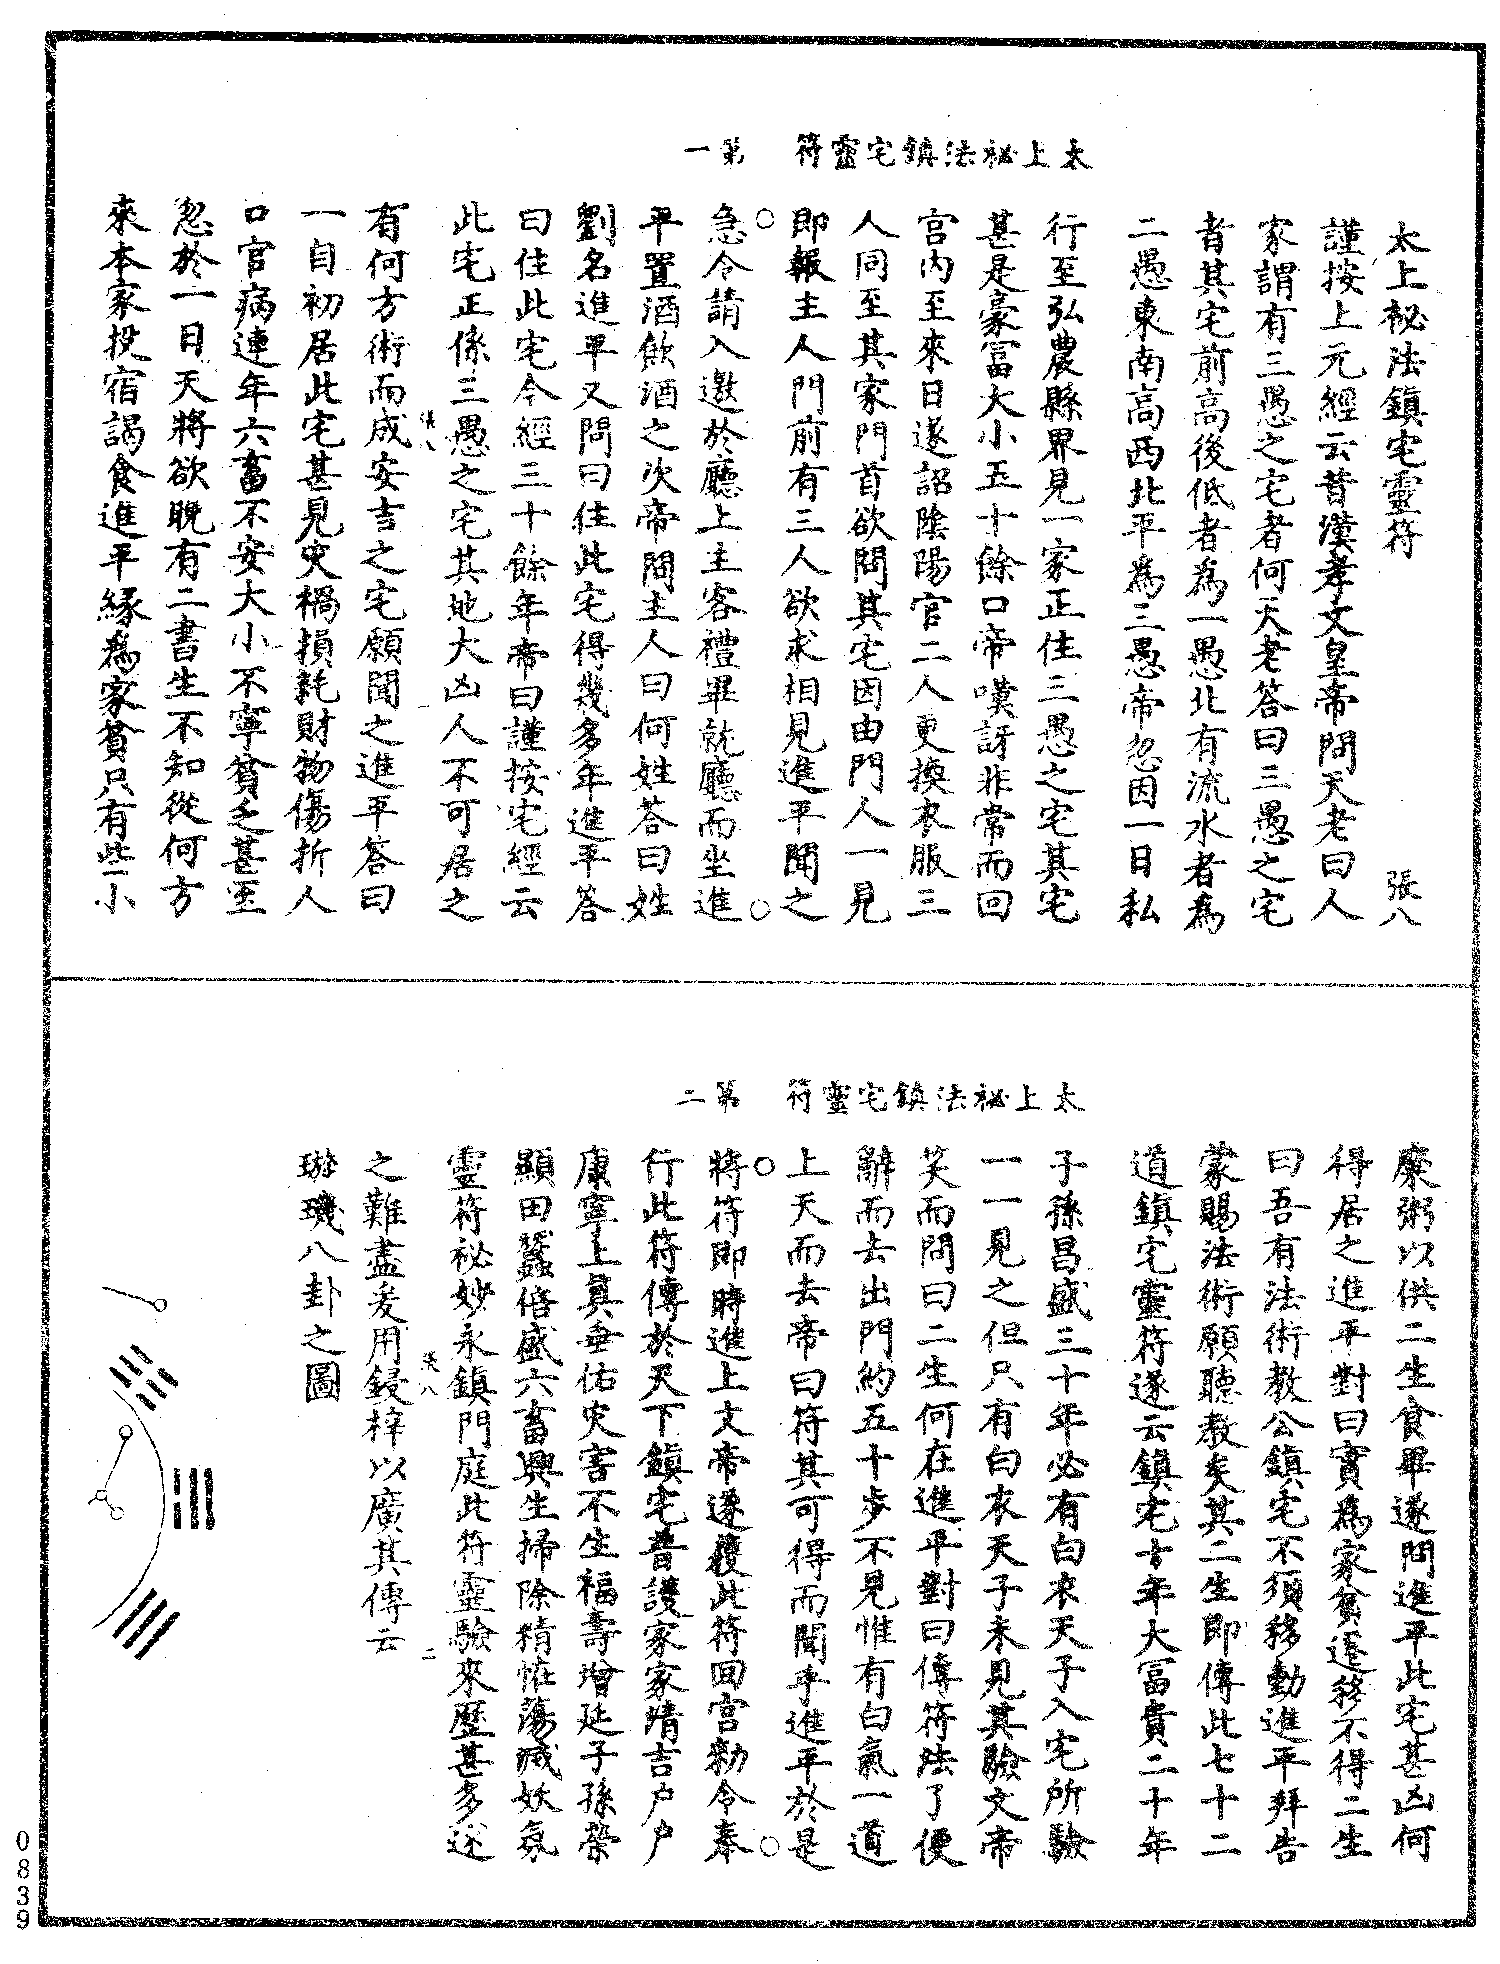 太上祕法鎮宅靈符　第一
太上祕法鎮宅靈符　張八
謹按上元經云昔漢孝文皇帝問天老曰人
家謂有三愚之宅者何天老答曰三愚之宅
者其宅前高後低者為一愚北有流水者為
二愚東南高西北平為三愚帝忽因一日私
行至弘農縣界見一家正住三愚之宅其宅
甚是豪富大小五十餘口帝嘆訝非常而回
宮內至來日遂詔陰陽官二人更換衣服三
人同至其家門首欲問其宅因由門人一見
即報主人門前有三人欲求相見進平聞之
急令請入邀於廳上主客禮畢就廳而坐進
平置酒飲酒之次帝問主人曰何姓答曰姓
劉名進平又問曰住此宅得幾多年進平答
曰住此宅今經三十餘年帝曰謹按宅經云
此宅正係三愚之宅其地大凶人不可居之
張八
有何方術而成安吉之宅願聞之進平答曰
一自初居此宅甚見灾禍損耗財物傷折人
口官病連年六畜不安大小不寧貧乏甚至
忽於一日天將欲晚有二書生不知從何方
來本家投宿謁食進平緣為家貧只有些小
太上祕法鎮宅靈符　第二
糜粥以供二生食畢遂問進平此宅甚凶何
得居之進平對曰實為家貧遷移不得二生
曰吾有法術教公鎮宅不須移動進平拜告
蒙賜法術願聽教矣其二生即傳此七十二
道鎮宅靈符遂云鎮宅十年大富貴二十年
子孫昌盛三十年必有白衣天子入宅所驗
一一見之但只有白衣天子未見其驗文帝
笑而問曰二生何在進平對曰傳符法了便
辭而去出門約五十步不見惟有白氣一道
上天而去帝曰符其可得而聞乎進平於是
將符即時進上文帝遂獲此符回宮勑令奉
行此符傳於天下鎮宅普護家家晴吉戶戶
康寧上真垂佑灾害不生福壽增延子孫榮
顯田蠶倍盛六畜興生掃除精恠蕩滅妖氛
靈符祕妙永鎮門庭此符靈驗來歷甚多述
張八　二
之難盡爰用鋟梓以廣其傳云
璇璣八卦之圖
0839